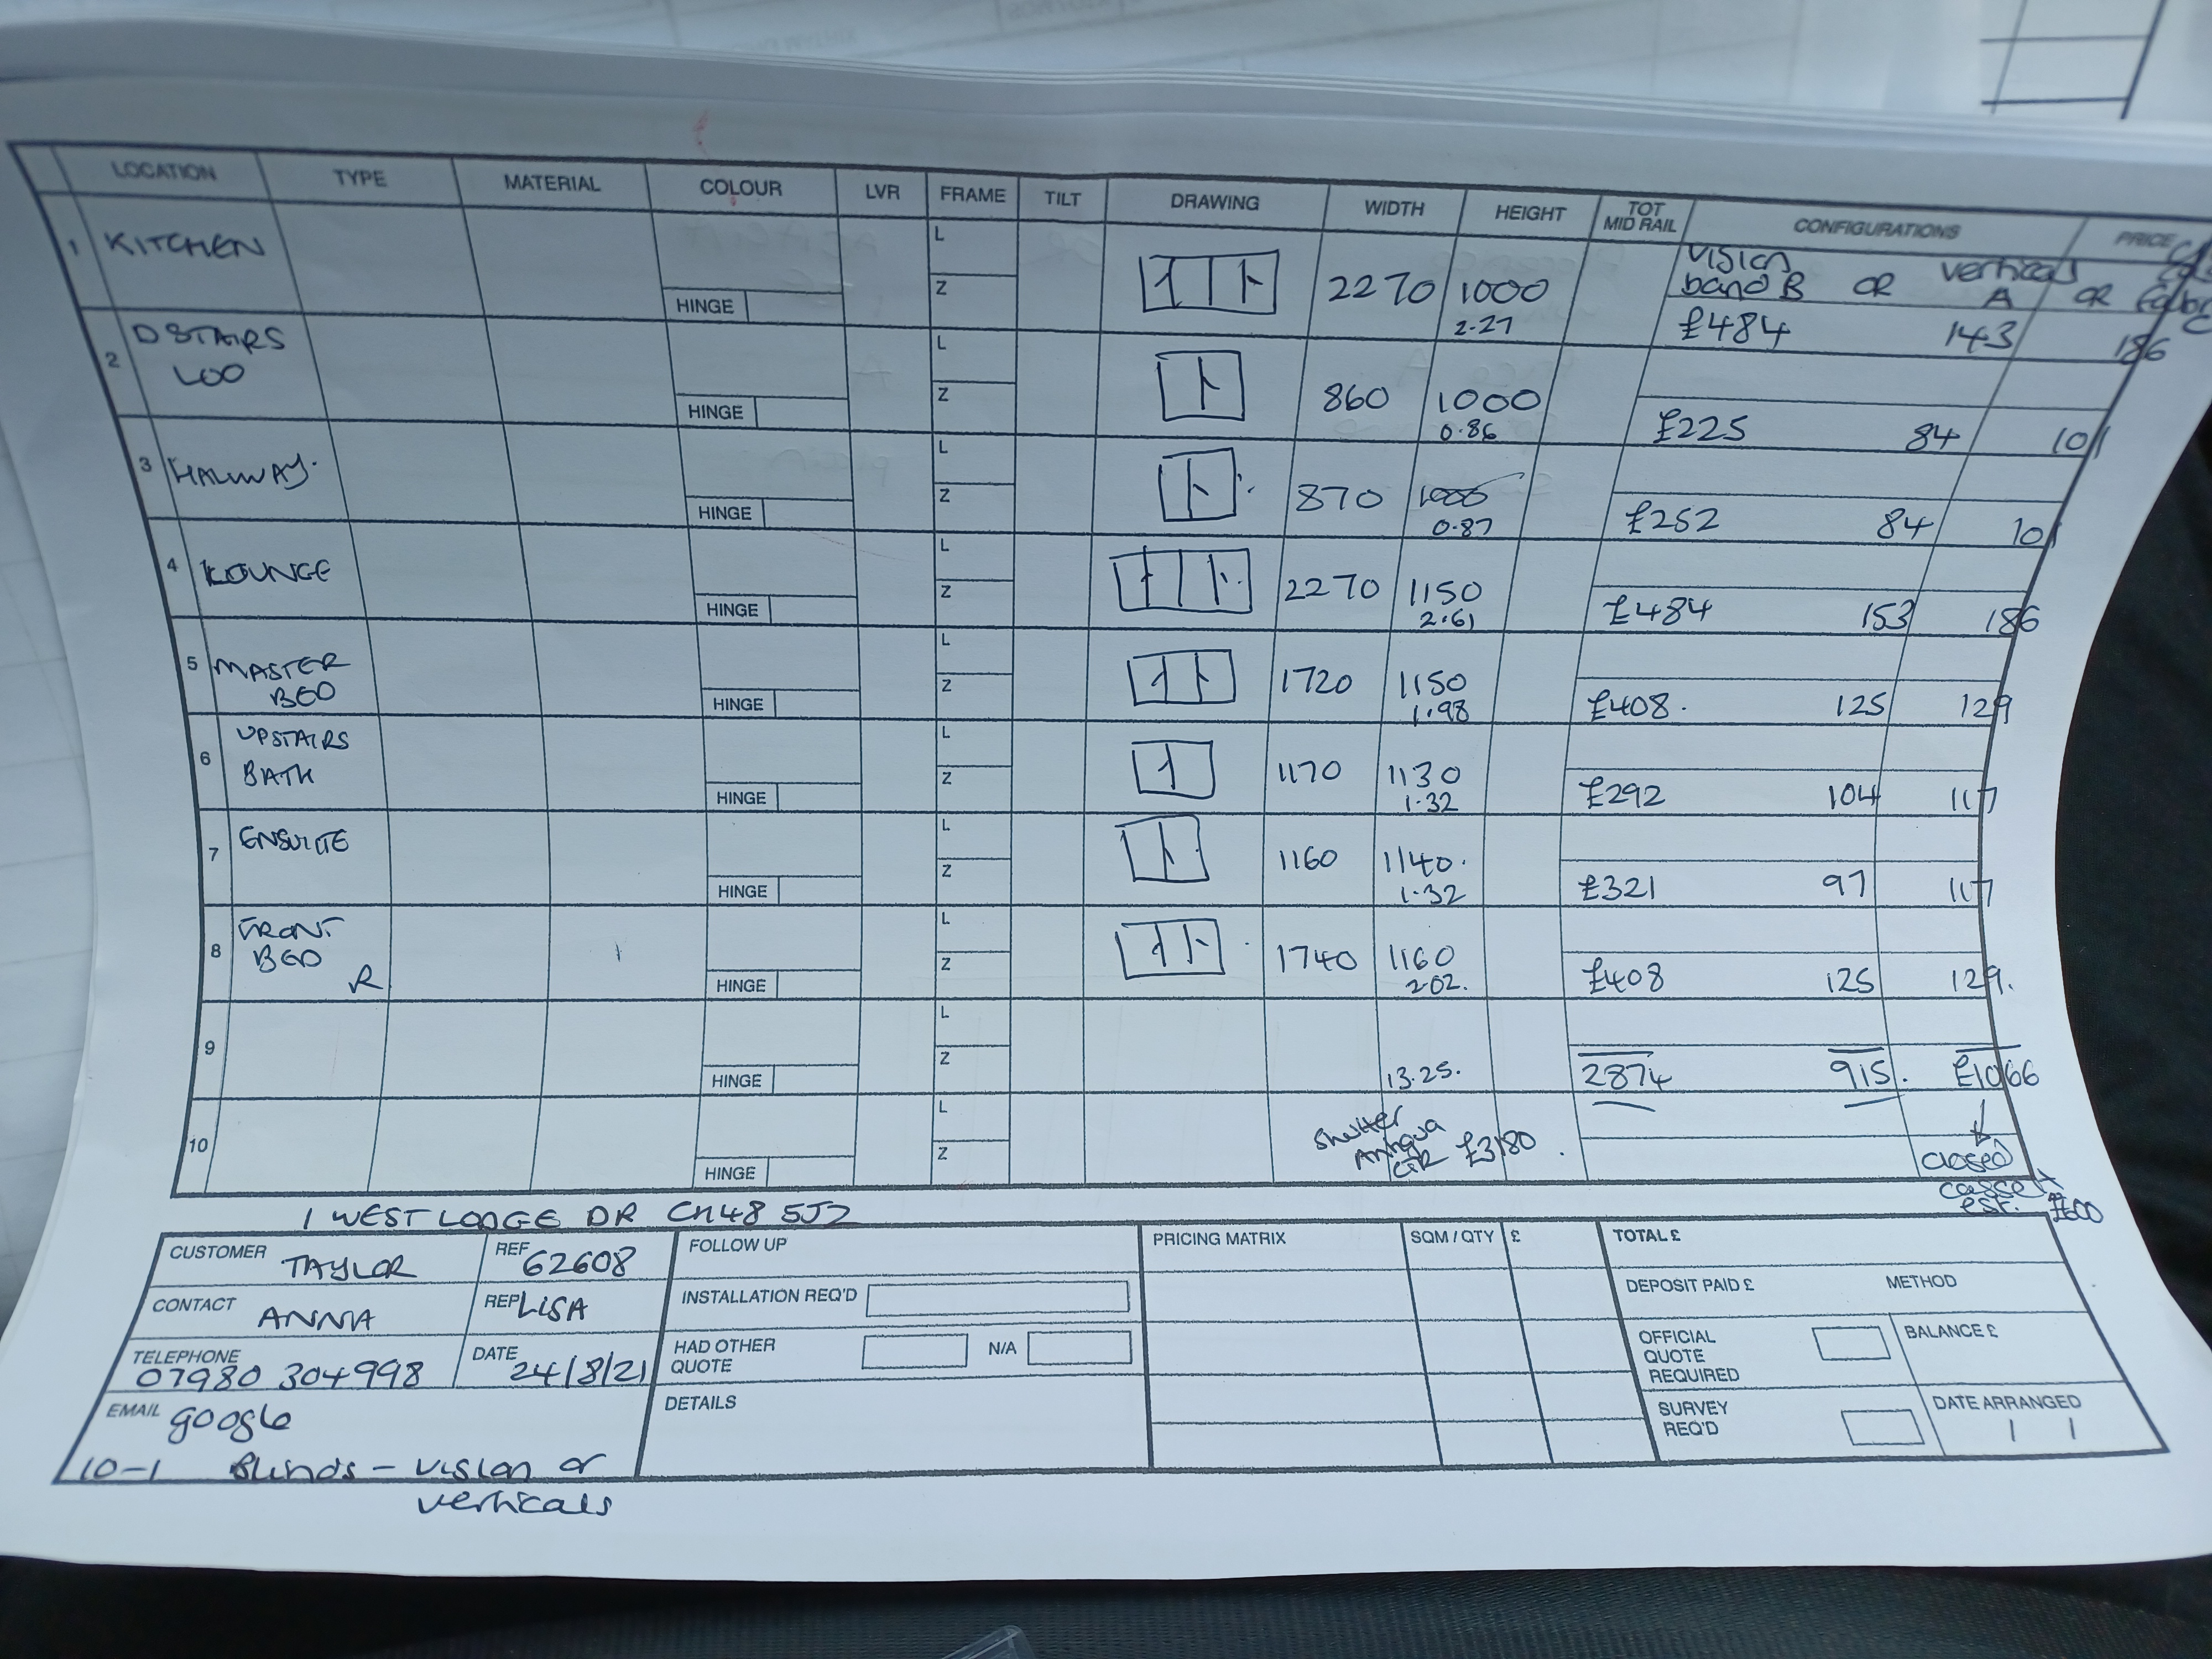 LOCATION TYPE MATERIAL COLOUR LVR FRAME TILT DRAWING WIDTH HEIGHT TOT MID RAIL CONFIGURATIONS PRICE
vision band B OR verticals A OR
1 KITCHEN HINGE L Z 2270 1000 2.27 £484 143 186
2 DSTAIRS LOO HINGE L Z 860 1000 0.86 £225 84 101
3 HALLWAY. HINGE L Z 870 1000 0.87 £252 84 101
4 LOUNGE HINGE L Z 2270 1150 2.61 £484 153 186
5 MASTER BED HINGE L Z 1720 1150 1.98 £408. 125 129
6 UPSTAIRS BATH HINGE L Z 1170 1130 1.32 £292 104 117
7 ENSUITE HINGE L Z 1160 1140. 1.32 £321 97 117
8 FRONT BED R HINGE L Z 1740 1160 2.02. £408 125 129.
9 HINGE L Z 13.25. 2874 915. £1066
10 HINGE L Z shutter £3180. closed
est. £600
1 WEST LODGE DR CH48 5JZ
CUSTOMER TAYLOR REF 62608 FOLLOW UP PRICING MATRIX SQM / QTY £ TOTAL £
CONTACT ANNA REP LISA INSTALLATION REQ'D DEPOSIT PAID £ METHOD
TELEPHONE 07980 304998 DATE 24/8/21 HAD OTHER QUOTE N/A OFFICIAL QUOTE REQUIRED BALANCE £
EMAIL google DETAILS SURVEY REQ'D DATE ARRANGED / /
10-1 Blinds - vision or
verticals